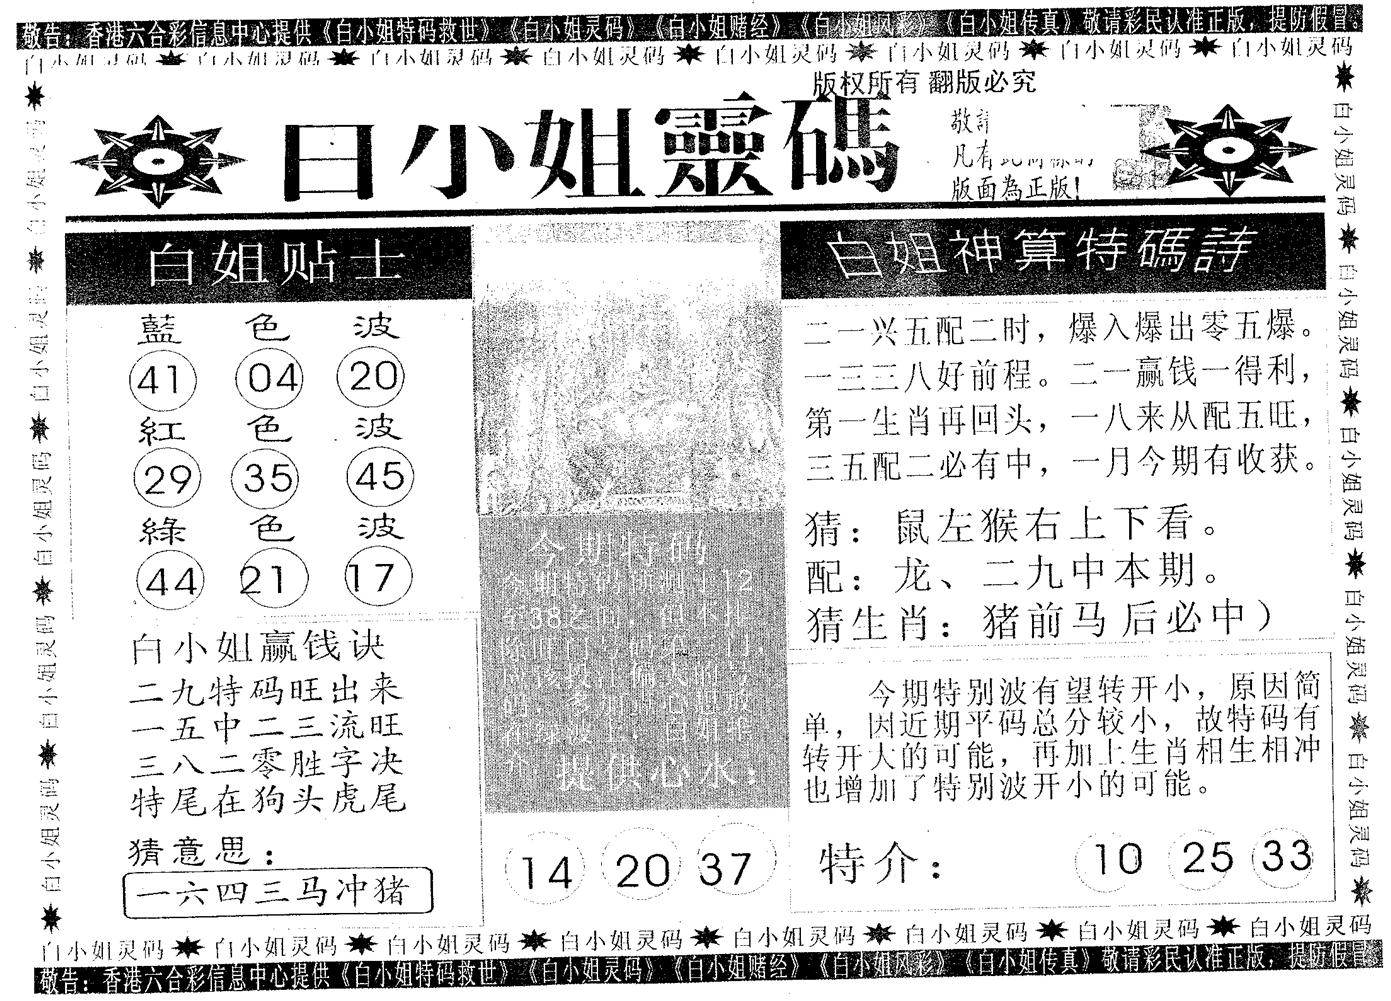 敬告：香港六合彩信息中心提供《白小姐特码救世》《白小姐灵码》《白小姐赌经》《白小姐风彩》《白小姐传真》敬请彩民认准正版，提防假冒。
白小姐灵码 白小姐灵码 白小姐灵码 白小姐灵码 白小姐灵码 白小姐灵码 白小姐灵码 白小姐灵码
版权所有 翻版必究
白小姐靈碼
敬
凡有
版面為正版！
白姐贴士
藍 色 波
41 04 20
紅 色 波
29 35 45
綠 色 波
44 21 17
白小姐赢钱诀
二九特码旺出来
一五中二三流旺
三八二零胜字决
特尾在狗头虎尾
猜意思：
一六四三马冲猪
今期特码
12
38之
提供心水：
14 20 37
白姐神算特碼詩
二一兴五配二时，爆入爆出零五爆。
一三三八好前程。二一赢钱一得利，
第一生肖再回头，一八来从配五旺，
三五配二必有中，一月今期有收获。
猜：鼠左猴右上下看。
配：龙、二九中本期。
猜生肖：猪前马后必中）
今期特别波有望转开小，原因简
单，因近期平码总分较小，故特码有
转开大的可能，再加上生肖相生相冲
也增加了特别波开小的可能。
特介：10 25 33
白小姐灵码 白小姐灵码 白小姐灵码 白小姐灵码 白小姐灵码
白小姐灵码 白小姐灵码 白小姐灵码 白小姐灵码 白小姐灵码
白小姐灵码 白小姐灵码 白小姐灵码 白小姐灵码 白小姐灵码 白小姐灵码 白小姐灵码 白小姐灵码
敬告：香港六合彩信息中心提供《白小姐特码救世》《白小姐灵码》《白小姐赌经》《白小姐风彩》《白小姐传真》敬请彩民认准正版，提防假冒